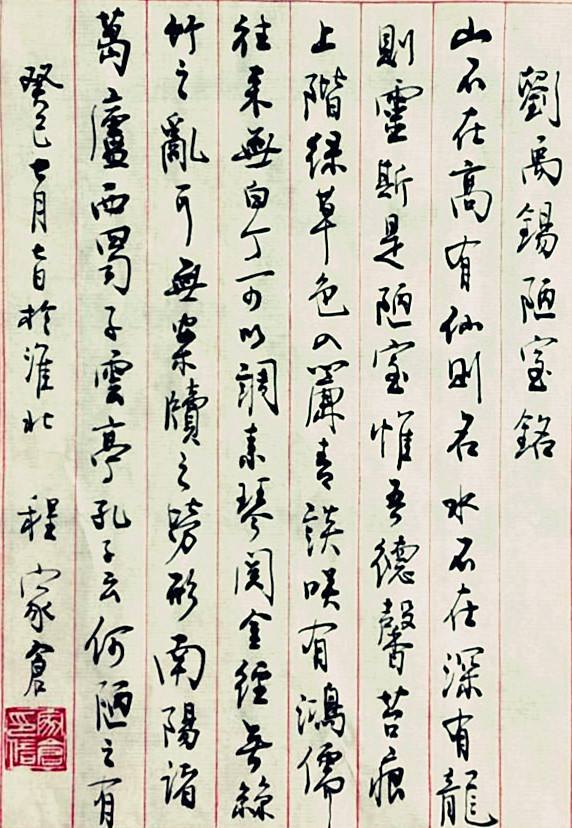 劉禹錫陋室銘
山不在高有仙則名水不在深有龍
則靈斯是陋室惟吾德馨苔痕
上階綠草色入簾青談咲有鴻儒
往來無白丁可以調素琴閱金經無絲
竹之亂耳無案牘之勞形南陽諸
葛廬西蜀子雲亭孔子云何陋之有
癸巳七月七日於淮北 程家倉
家倉印信